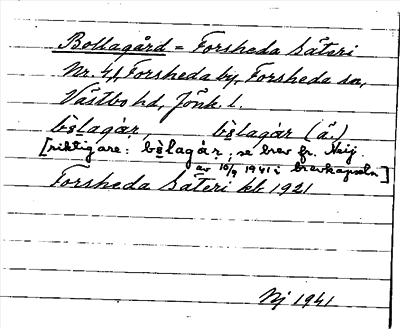 Bollagård = Forsheda Säteri
Nr. 4, Forsheda by, Forsheda sn,
Västbo hd, Jönk. l.
bɛ̀lagár, bɛlagár (ä.)
[riktigare: bɛ̀lagár; se brev fr. Neij.
av 10/9 1941 i brevkapseln]
Forsheda Säteri kb 1921
Nj 1941